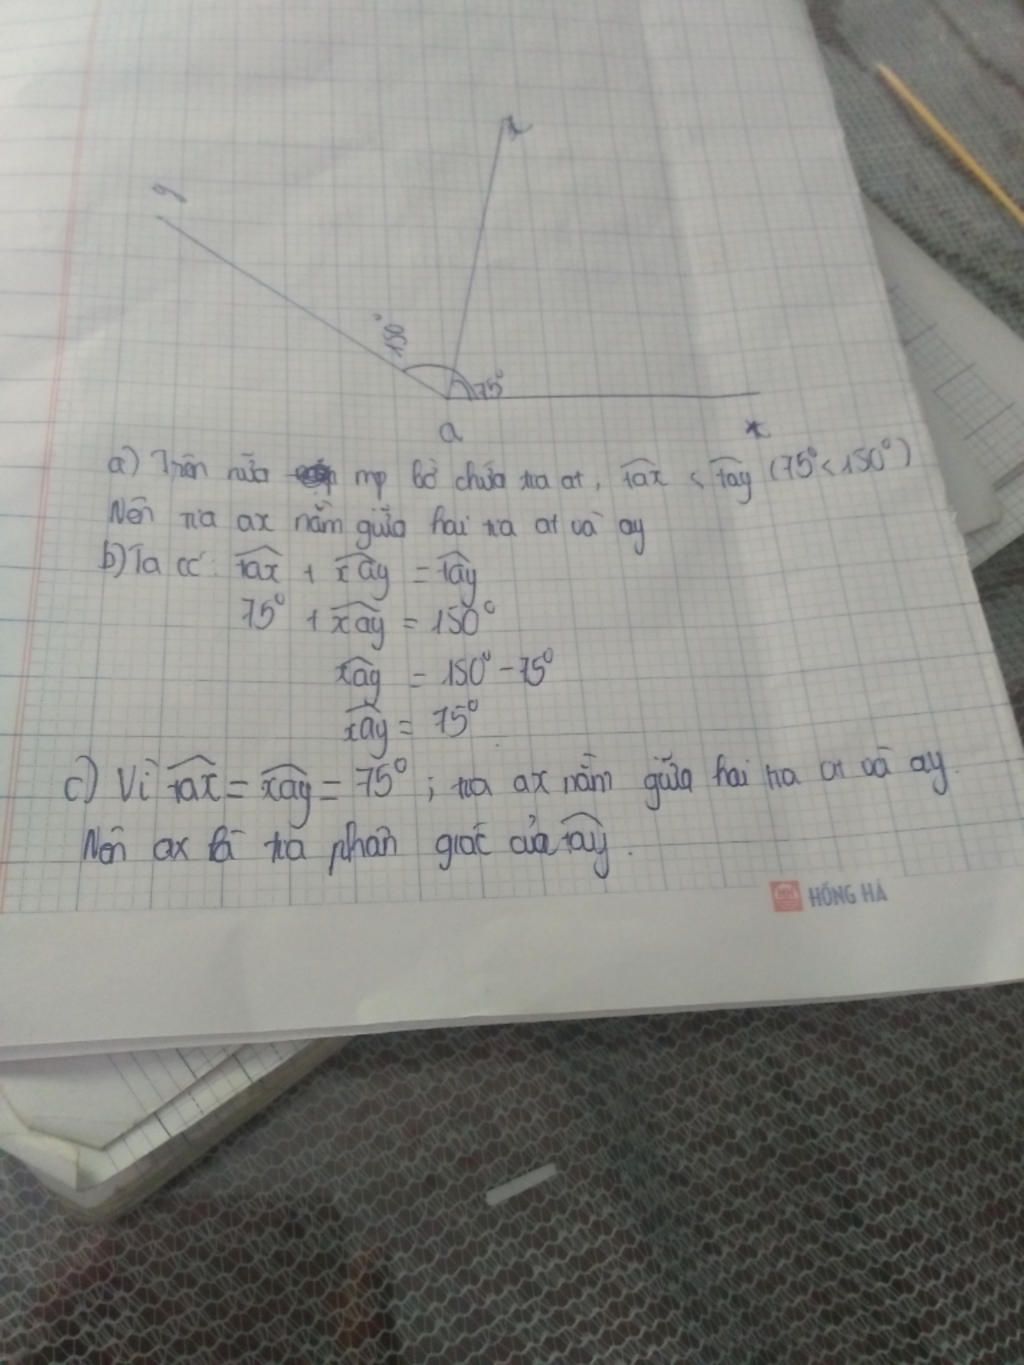 x
y
150°
75°
a
t
a) Trên nửa mp bờ chứa tia at, tax < tay (75° < 150°)
Nên tia ax nằm giữa hai tia at và ay
b) Ta có: tax + xay = tay
75° + xay = 150°
xay = 150° - 75°
xay = 75°
c) Vì tax = xay = 75° ; tia ax nằm giữa hai tia at và ay.
Nên ax là tia phân giác của tay.
HỒNG HÀ